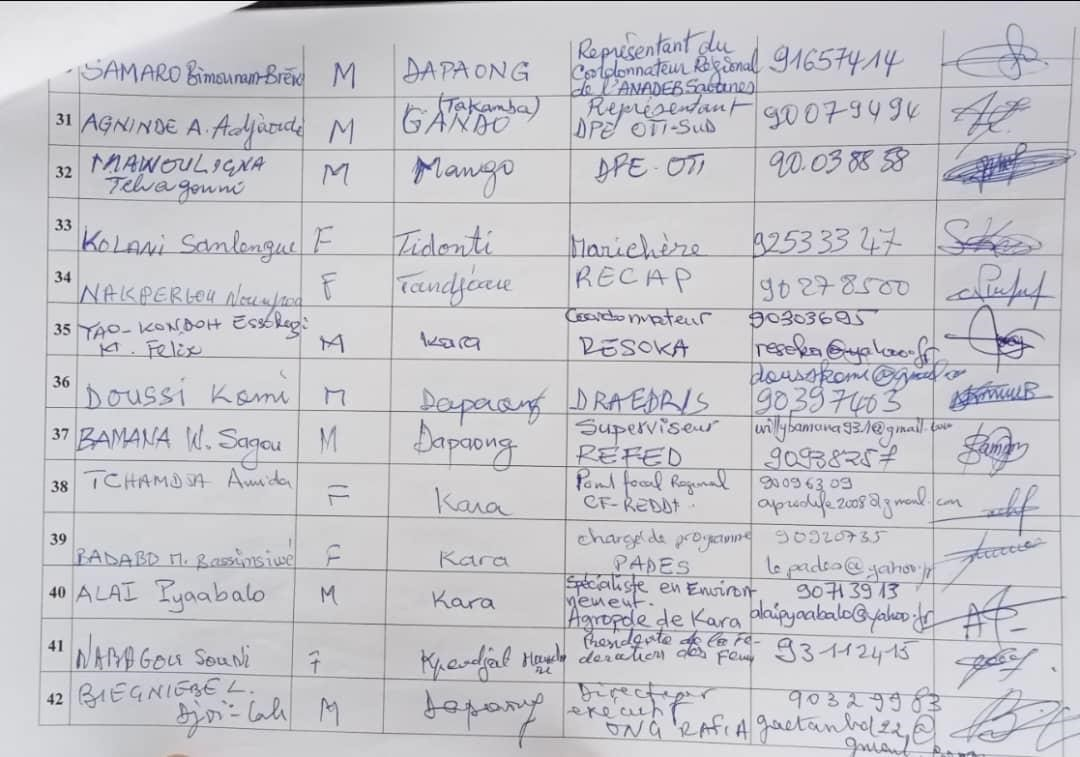 SAMARO Bimounam-Brève M DAPAONG Représentant du Coordonnateur Régional de l'ANADEB Savanes 91657414
31 AGNINDE A. M GANDO (Takamba) Représentant DPE OTI-SUD 90079494
32 MAWOULIGNA M Mango DPE-OTI 90.03 88 58
33 KOLANI Sanlengue F Tidonti Marichère 92533347
34 NAKPERGOU F Tandjoare RECAP 90278500
35 YAO-KONDOH Essokezi K. Felix M Kara Coordonnateur RESOKA 90303695 resoka@yahoo.fr
36 DOUSSI Komi M Dapaong DRAEDRIS 90397403
37 BAMANA W. Sagou M Dapaong Superviseur REFED willybamana931@gmail.com 90938257
38 TCHAMDJA Amida F Kara Point focal Regional CF-REDD+. 90096309
39 BADABO M. Bassinsiwé F Kara chargé de programme PADES 90920735
40 ALAI Pyaabalo M Kara Spécialiste en Environnement. Agropole de Kara 90713913 alaipyaabalo@yahoo.fr
41 NABAGOU Souni F Kpendjal Présidente de la Fédération des Fem 93112415
42 BIEGNIEBE L. M Dapaong Directeur exécutif ONG RAFIA 90329983